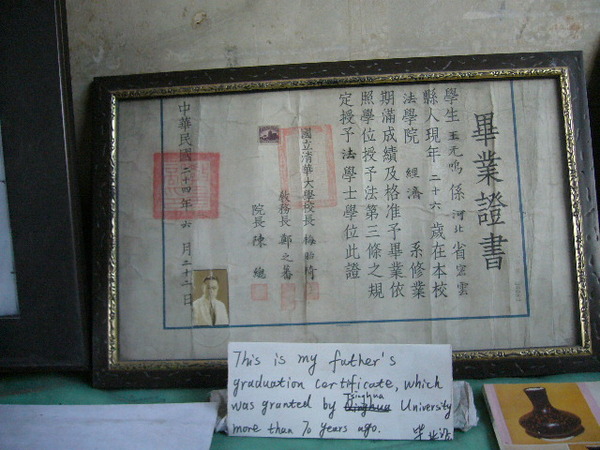 畢業證書
學生 王元 係 河北 省 密雲
縣人現年 二十六 歲在本校
法學院 經濟 系修業
期滿成績及格准予畢業依
照學位授予法第三條之規
定授予 法 學士學位此證
國立清華大學校長 梅貽琦
教務長 鄭之蕃
院長 陳總
中華民國二十四年六月二十二日
This is my futher's
graduation certificate, which
was granted by Tsinghua University
more than 70 years ago. 毕业证